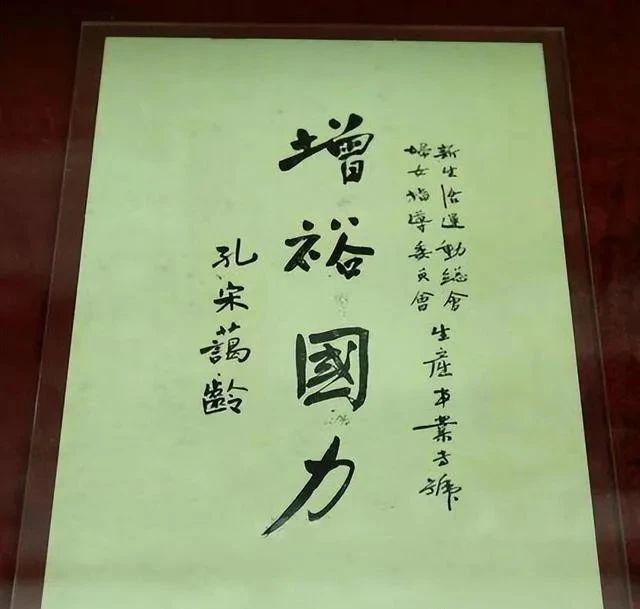 新生活運動總會
婦女指導委員會
生產事業专號
增裕國力
孔宋藹齡